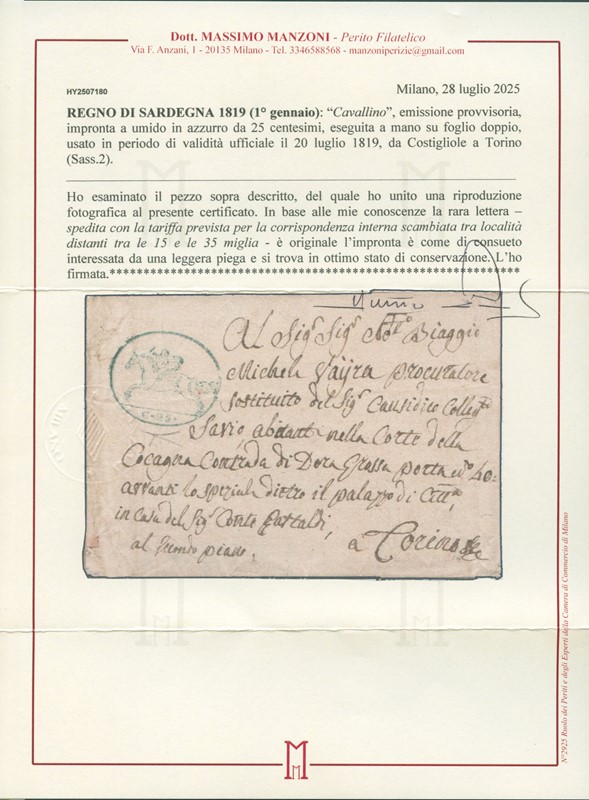 Dott. MASSIMO MANZONI - Perito Filatelico
Via F. Anzani, 1 - 20135 Milano - Tel. 3346588568 - manzoniperizie@gmail.com
HY2507180
Milano, 28 luglio 2025
REGNO DI SARDEGNA 1819 (1° gennaio): “Cavallino”, emissione provvisoria,
impronta a umido in azzurro da 25 centesimi, eseguita a mano su foglio doppio,
usato in periodo di validità ufficiale il 20 luglio 1819, da Costigliole a Torino
(Sass.2).
Ho esaminato il pezzo sopra descritto, del quale ho unito una riproduzione
fotografica al presente certificato. In base alle mie conoscenze la rara lettera –
spedita con la tariffa prevista per la corrispondenza interna scambiata tra località
distanti tra le 15 e le 35 miglia - è originale l’impronta è come di consueto
interessata da una leggera piega e si trova in ottimo stato di conservazione. L’ho
firmata.
Al Sigr Sigr Biaggio
Michele procuratore
sostituito del Sigr Causidico Collegto
Savio abitant nella Corte della
Cocagna Contrada di Dora Grossa porta no 40=
avanti lo speziale dietro il palazzo di Città
in casa del Sigr Conte
al secondo piano,
a Torino
C. 25.
N°2925 Ruolo dei Periti e degli Esperti della Camera di Commercio di Milano
M